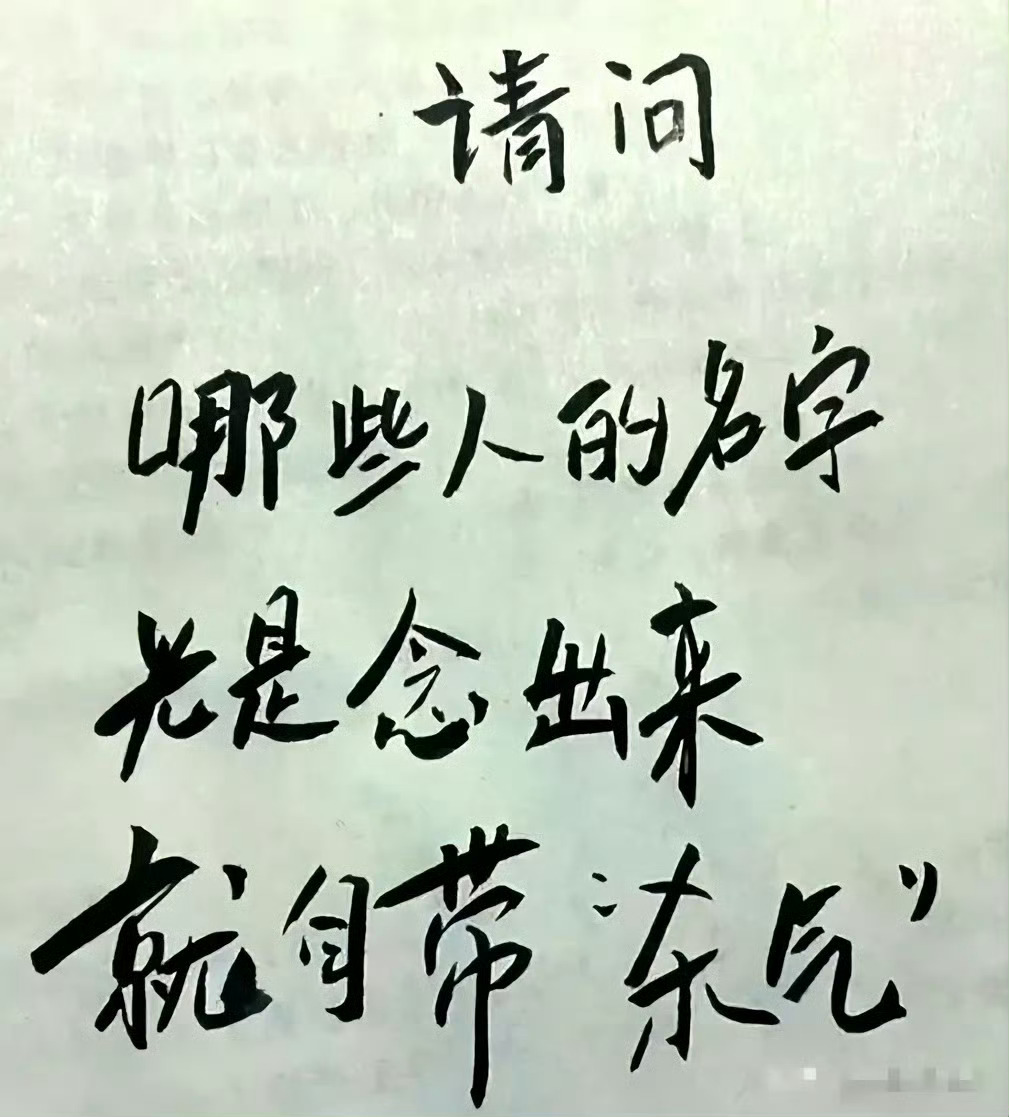 请问
哪些人的名字
光是念出来
就自带“杀气”